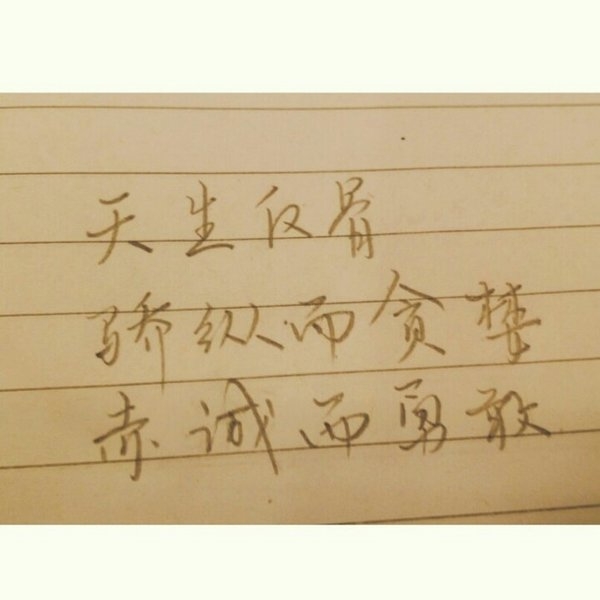 天生反骨
骄纵而贪婪
赤诚而勇敢